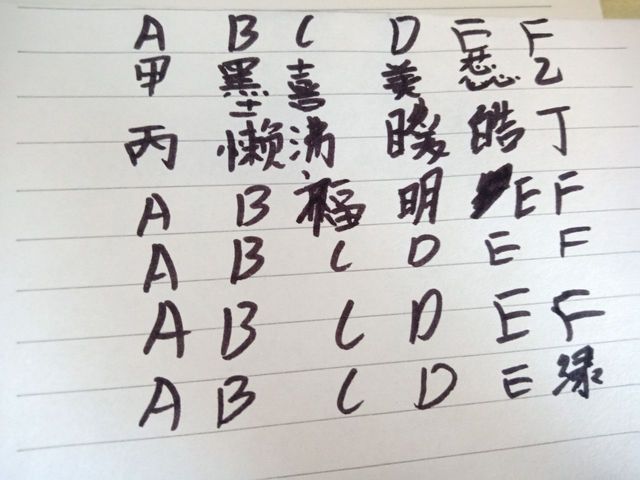 A B C D E F
甲 墨 喜 美 乙
丙 懒 皓 丁
A B 福 明 E F
A B C D E F
A B C D E F
A B C D E 绿